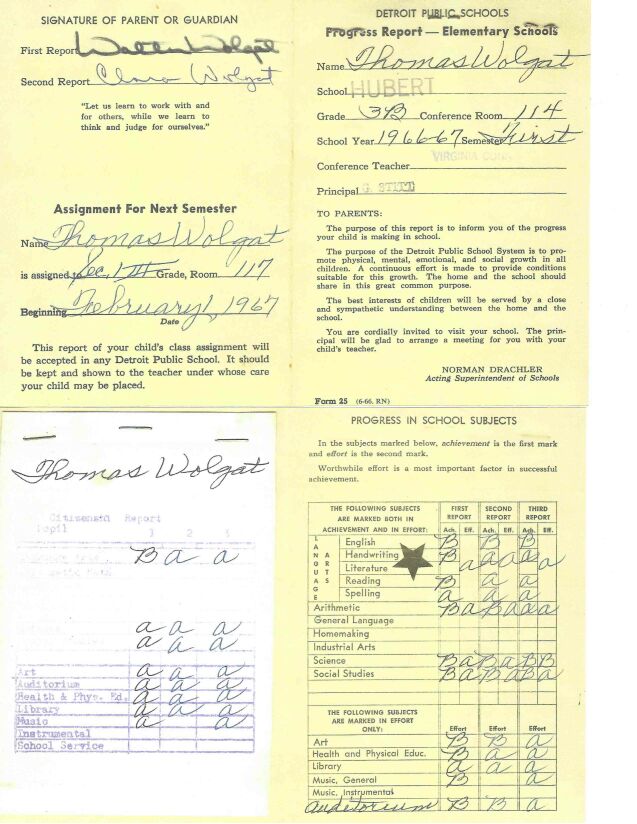 SIGNATURE OF PARENT OR GUARDIAN
First Report Walter Wolgat
Second Report Clara Wolgat
"Let us learn to work with and
for others, while we learn to
think and judge for ourselves."
Assignment For Next Semester
Name Thomas Wolgat
is assigned to Sec. Grade, Room 117
Beginning February 1, 1967
Date
This report of your child's class assignment will
be accepted in any Detroit Public School. It should
be kept and shown to the teacher under whose care
your child may be placed.
DETROIT PUBLIC SCHOOLS
Progress Report — Elementary Schools
Name Thomas Wolgat
School HUBERT
Grade 3B Conference Room 114
School Year 1966-67 Semester First
Conference Teacher VIRGINIA
Principal G.
TO PARENTS:
The purpose of this report is to inform you of the progress
your child is making in school.
The purpose of the Detroit Public School System is to pro-
mote physical, mental, emotional, and social growth in all
children. A continuous effort is made to provide conditions
suitable for this growth. The home and the school should
share in this great common purpose.
The best interests of children will be served by a close
and sympathetic understanding between the home and the
school.
You are cordially invited to visit your school. The prin-
cipal will be glad to arrange a meeting for you with your
child's teacher.
NORMAN DRACHLER
Acting Superintendent of Schools
Form 25 (6-66, RN)
Thomas Wolgat
Citizenship Report
Pupil
1 2 3
B a a
a a a
a a a
Art a a a
Auditorium a a a
Health & Phys. Ed. a a a
Library a a a
Music a a
Instrumental
School Service
PROGRESS IN SCHOOL SUBJECTS
In the subjects marked below, achievement is the first mark
and effort is the second mark.
Worthwhile effort is a most important factor in successful
achievement.
THE FOLLOWING SUBJECTS
ARE MARKED BOTH IN
ACHIEVEMENT AND IN EFFORT:
FIRST REPORT SECOND REPORT THIRD REPORT
Ach. Eff. Ach. Eff. Ach. Eff.
LANGUAGE ARTS
English B B B
Handwriting B a a a a
Literature a a
Reading B a a
Spelling a a a
Arithmetic B a B a a a
General Language
Homemaking
Industrial Arts
Science B a B a B B
Social Studies B a B a B a
THE FOLLOWING SUBJECTS
ARE MARKED IN EFFORT
ONLY:
Effort Effort Effort
Art B B a
Health and Physical Educ. B a a
Library a a a
Music, General B a
Music, Instrumental
Auditorium B B a